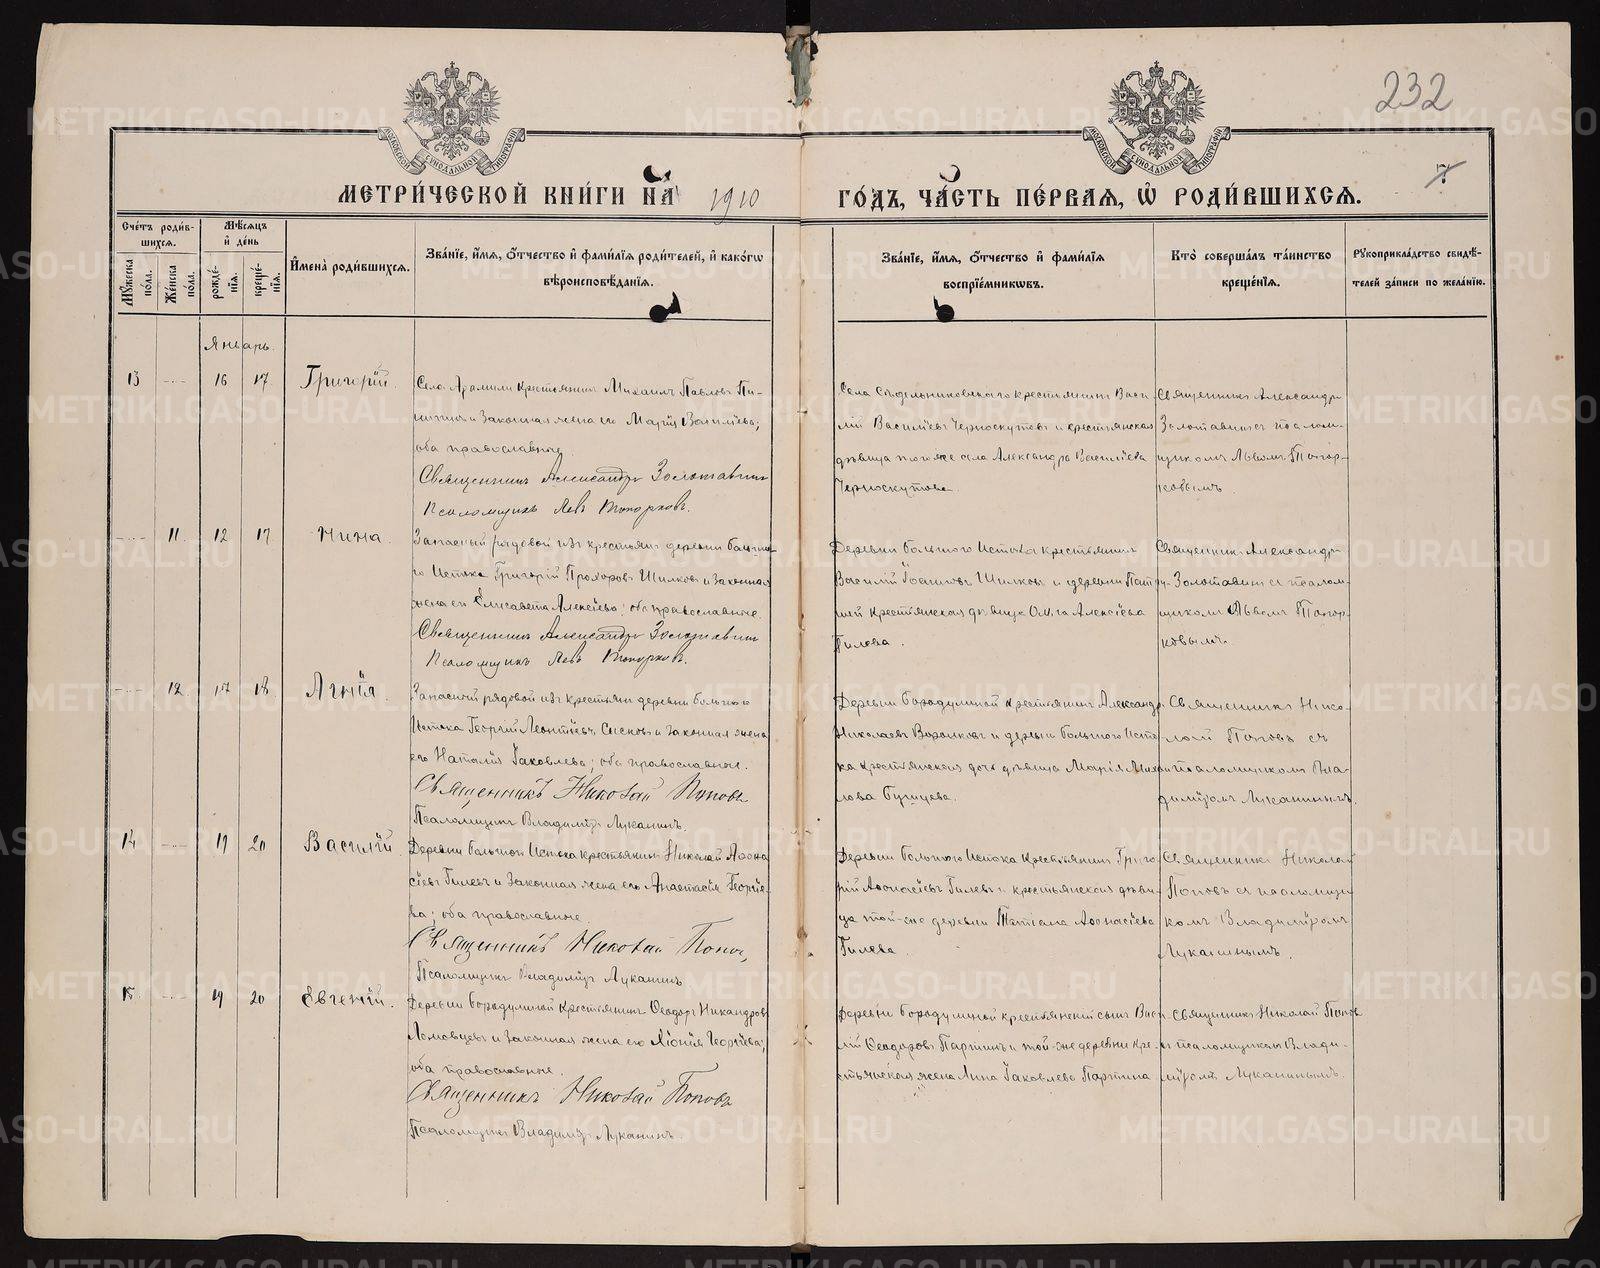 232
7
МОСКОВСКОЙ СѴНОДАЛЬНОЙ ТИПОГРАФІИ
МОСКОВСКОЙ СѴНОДАЛЬНОЙ ТИПОГРАФІИ
МЕТРИ́ЧЕСКОЙ КНИ́ГИ НА̀ 1910 ГО́ДЪ, ЧА́СТЬ ПЕ́РВАЯ, Ѡ҆ РОДИ́ВШИХСЯ.
Сче́тъ роди́в-
шихся.
Мꙋ́жеска по́ла.
Же́нска по́ла.
Мѣ́сяцъ
и҆ де́нь
рожде́-
нїя.
креще́-
нїя.
И҆мена̀ роди́вшихся.
Зва́нїе, и҆́мя, ѻ҆́тчество и҆ фами́лїя роди́телей, и҆ како́гѡ
вѣроисповѣ́данїя.
Зва́нїе, и҆́мя, ѻ҆́тчество и҆ фами́лїя
воспрїе́мникѡвъ.
Кто̀ соверша́лъ та́инство
креще́нїя.
Рꙋкоприкла́дство свидѣ́-
телей за́писи по жела́нїю.
Январь.
13 16 17 Григорій.
Села Арамили крестьянинъ Михаилъ Павловъ Пи-
и законная жена его Марія Васильева;
оба православные
Священникъ Александръ Золотавинъ
Псаломщикъ Левъ Топорковъ.
Села Сѣдельниковскаго крестьянинъ Васи
лій Васильевъ Черноскутовъ и крестьянская
дѣвица того же села Александра Васильева
Черноскутова.
Священникъ Александръ
Золотавинъ съ псалом-
щикомъ Львомъ Топор-
ковымъ.
11. 12 17 Нина.
Запасный рядовой изъ крестьянъ деревни большо-
го Истока Григорій Прохоровъ Шилковъ и законная
жена его Елисавета Алексѣева; оба православные.
Священникъ Александръ Золотавинъ
Псаломщикъ Левъ Топорковъ.
Деревни большого Истока крестьянинъ
Василій Шилковъ и деревни
крестьянская дѣвица Ольга Алексѣева
Гилова.
Священникъ Александръ
Золотавинъ съ псалом-
щикомъ Львомъ Топор-
ковымъ.
12. 17 18 Агнія.
Запасной рядовой изъ крестьянъ деревни большого
Истока Георгій Леонтіевъ и законная жена
его Наталія Іаковлева; оба православные.
Священникъ Николай Поповъ
Псаломщикъ Владиміръ Луканинъ.
Деревни бородулиной крестьянинъ Александръ
Николаевъ и деревни большого Исто-
ка крестьянская дочь дѣвица Марія
Священникъ Нико-
лай Поповъ съ
псаломщикомъ Вла-
диміромъ Луканинымъ.
14 19 20 Василій.
Деревни большого Истока крестьянинъ Николай Аѳона
сіевъ Гилевъ и законная жена его Анастасія Георгіе-
ва; оба православные.
Священникъ Николай Поповъ,
Псаломщикъ Владиміръ Луканинъ
Деревни большого Истока крестьянинъ Григо-
рій Аѳонасіевъ Гилевъ и крестьянская дѣви-
ца той-же деревни Татіана Аѳонасіева
Гилева.
Священникъ Николай
Поповъ съ псаломщи-
комъ Владиміромъ
Луканинымъ.
15. 19 20 Евгеній.
Деревни бородулиной крестьянинъ Ѳеодоръ Никандровъ
и законная жена его Георгіева;
оба православные.
Священникъ Николай Поповъ
Псаломщикъ Владиміръ Луканинъ.
Деревни бородулиной крестьянскій сынъ Васи-
лій Ѳеодоровъ Паргинъ и той-же деревни кре-
стьянская жена Анна Іаковлева Паргина
Священникъ Николай Поповъ
и псаломщикомъ Влади-
міромъ Луканинымъ.
METRIKI.GASO-URAL.RU